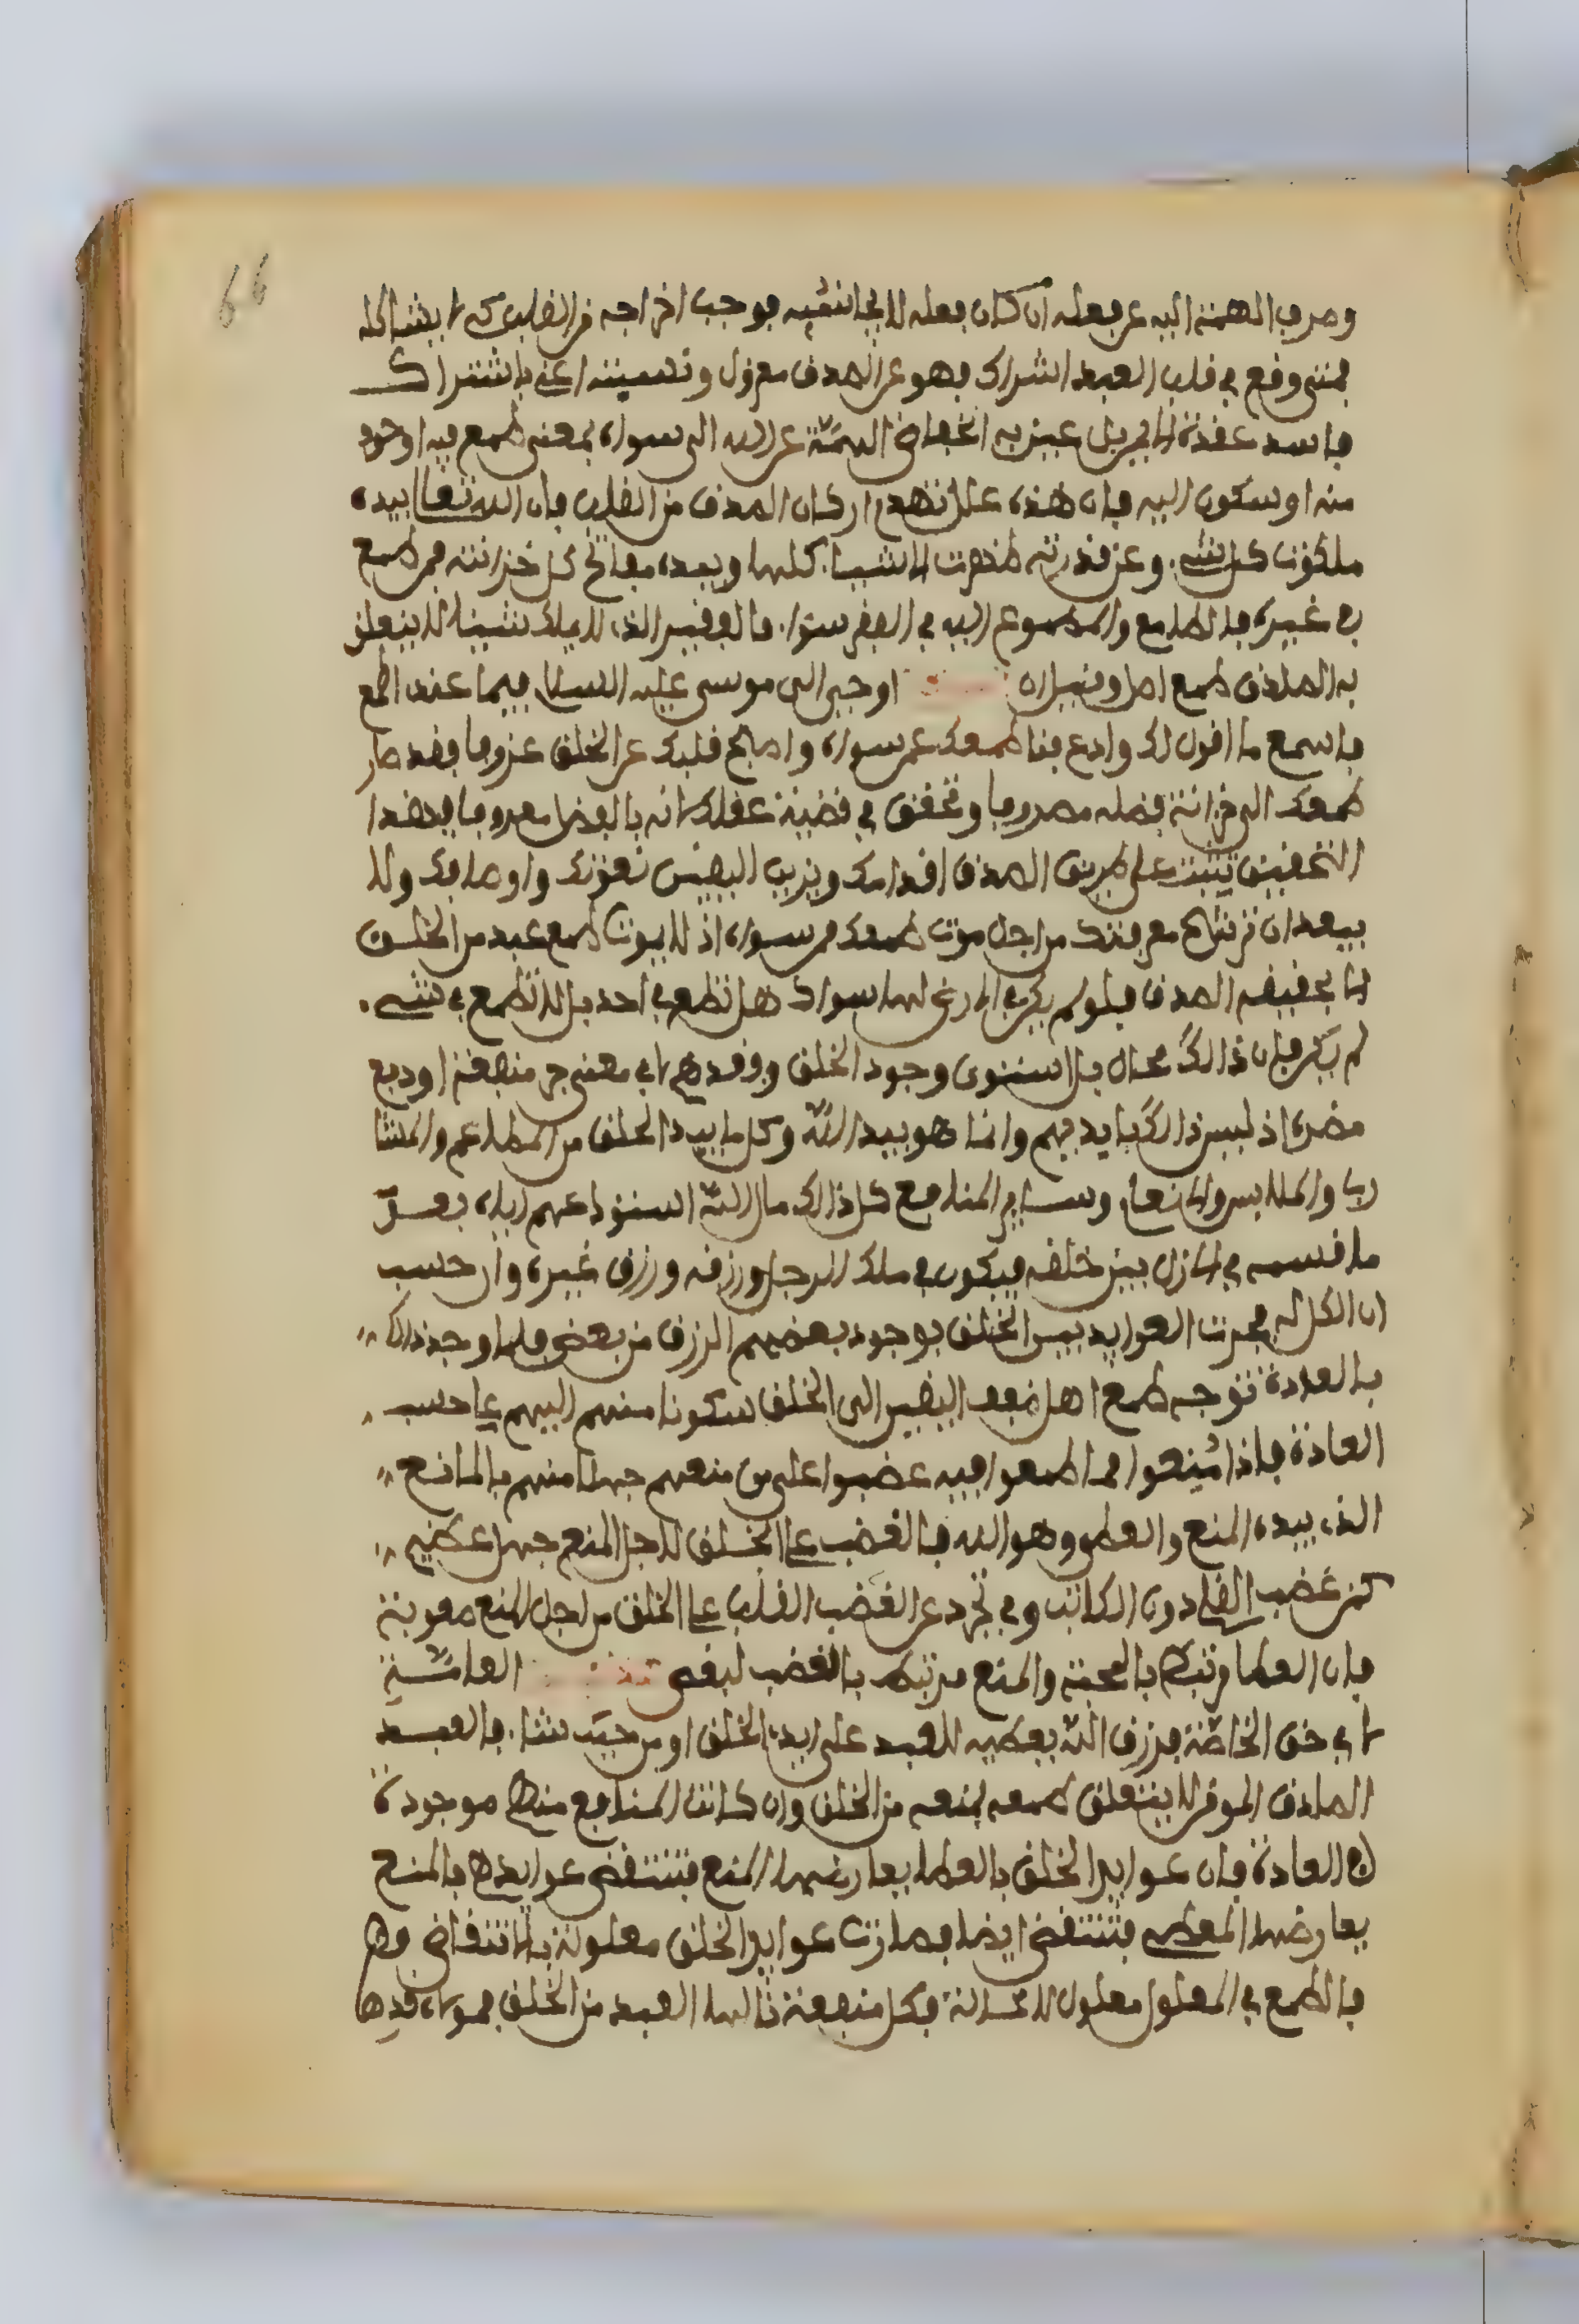 66
وصرف الهمة اليه عن فعله ان كان فعله لا يجانفيه فوجب اخراجه من القلب كي لا يشاكله
فمتى وقع في قلب العبد اشراك فهو عن الصدق معزول وتسميته اعني باشتراك
فاسد عقدة الايمان بل عنيت به انخفاض الهمة عن الله الى سواه بمعنى طمع فيه او خوف
منه او سكون اليه فان هذه علل تهدم اركان الصدق من القلب فان الله تعالى بيده
ملكوت كل شيء وعن قدرته ظهرت الاشياء كلها وبيده مفاتح كل خزائنه فمن طمع
في غيره فالطامع والمطموع اليه في الفقر سواء فالفقير الذي لا يملك شيئا لا يتعلق
به الصادق طمع اصلا وقيل ان اوحي الى موسى عليه السلام فيما عند اطمع
فاسمع ما اقول لك وادع منا طمعك عن سواه واصبح قلبك عن الخلق عزوفا فقد صار
طمعك الى خزانة فضله مصروفا وتحقق في قضية عقلك انه بالفضل معروفا فبهذا
التحقيق تثبت على طريق الصدق اقدامك ويزيد اليقين نعوتك واوصافك ولا
يبعد ان ترشح معرفتك من اجل موت طمعك من سواه اذ لا يموت طمع عبد من الخلق
الا بحقيقة الصدق فلو لم يكن في الارض لها سواك هل تطمع في احد بل لا تطمع في شيء
لم يكن فان ذالك محال بل استوى وجود الخلق وفقدهم اي معنى جر منفعة او دفع
مضرة اذ ليس ذالك بايديهم وانما هو بيد الله وكل ما بيد الخلق من المطاعم والمشا
رب والملابس والانعام وسائر المنافع كل ذالك مال الله استودعهم اياه بعدل
ما قسمه في الازل بين خلقه فيكون في ملك الرجل ورزقه ورزق غيره وان حسب
ان الكل له فجرت العوايد بين الخلق بوجود بعضهم الرزق من بعض فلما وجد ذالك
بالعادة توجه طمع اهل ضعف اليقين الى الخلق سكونا منهم اليهم على حسب
العادة فاذا مُنعوا مما طمعوا فيه غضبوا على من منعهم جهلا منهم بالمانع
الذي بيده المنع والعطا وهو الله فالغضب على الخلق لاجل المنع جهل عظيم
كمن غضب القلم دون الكاتب وفي تجرد عن الغضب القلب على الخلق من اجل المنع معونة
فان العطا مرتبط بالمحبة والمنع مرتبط بالغضب لبعض العامة
لا في حق الخاصة فرزق الله يعطيه للعبد على ايدي الخلق او من حيث شاء فالعبد
الصادق الموقن لا يتعلق طمعه بمنعه من الخلق وان كانت المنافع منهم موجودة
في العادة فان عوايد الخلق بالعطا يعارضها المنع فتنتقض عوايدها بالمنع
يعارضها المعطي فتنتقض ايضا فصارت عوايد الخلق معلولة بالانتقاض وهي
فالطمع في المعلول معلول لا محالة فكل منفعة نالها العبد من الخلق فمولاه قدها